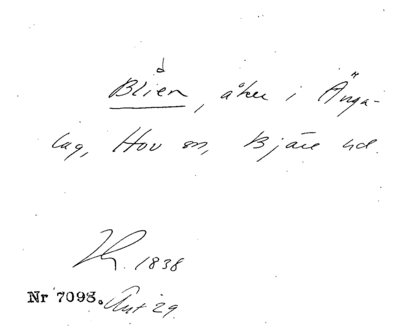 Blien, åker i Änga-
lag, Hov sn, Bjäre hd.
1838
Nr 7098. Akt 29.